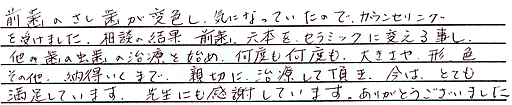 前歯のさし歯が変色し、気になっていたので、カウンセリング
を受けました。相談の結果 前歯、六本を、セラミックに変える事し、
他の歯の虫歯の治療と始め、何度も何度も、大きさや、形、色
その他、納得いくまで、親切に、治療して頂き、今は、とても
満足しています。先生にも感謝しています。ありがとうございました